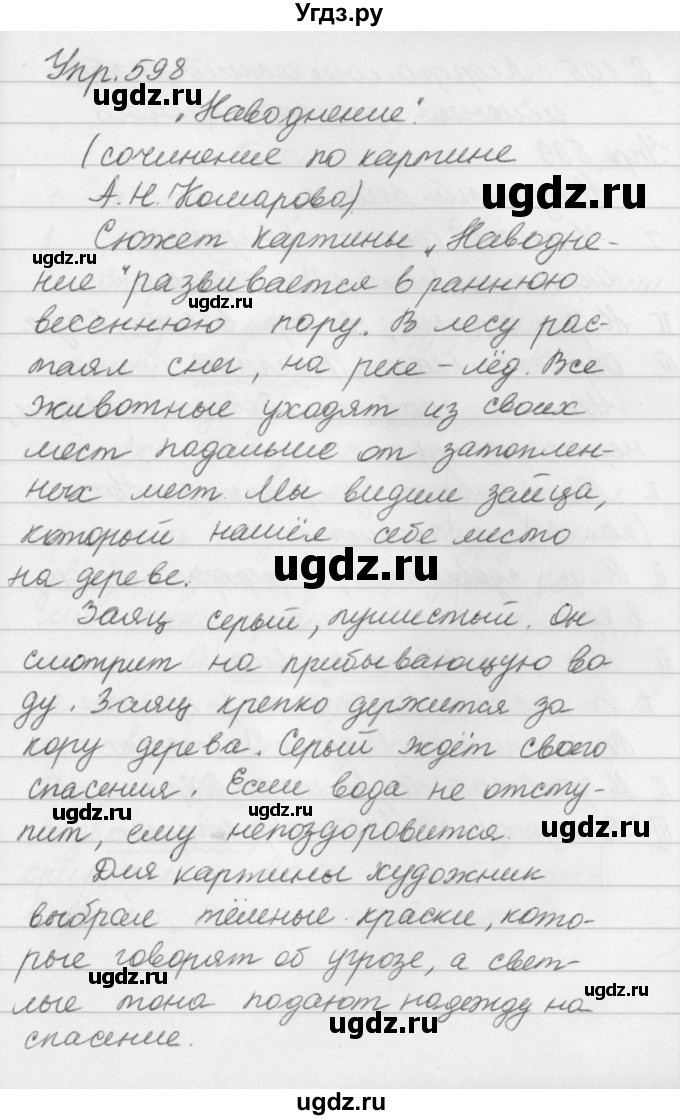 Угдз.ру
Упр. 598
ugdz.ru
„Наводнение".
(сочинение по картине
ugdz.ru
А. Н. Комарова).
Сюжет картины „Наводне-
ugdz.ru
ние" развивается в раннюю
ugdz.ru
весеннюю пору. В лесу рас-
таял снег, на реке - лёд. Все
животные уходят из своих
мест подальше от затоплен-
ных мест. Мы видим зайца,
который нашёл себе место
ugdz.ru
на дереве.
Заяц серый, пушистый. Он
смотрит на прибывающую во-
ду. Заяц крепко держится за
кору дерева. Серый ждёт своего
спасения. Если вода не отсту-
ugdz.ru
ugdz.ru
ugdz.ru
пит, ему непоздоровится.
Для картины художник
выбрал тёмные краски, кото-
рые говорят об угрозе, а свет-
ugdz.ru
ugdz.ru
лые тона подают надежду на
ugdz.ru
спасение.
ugdz.ru